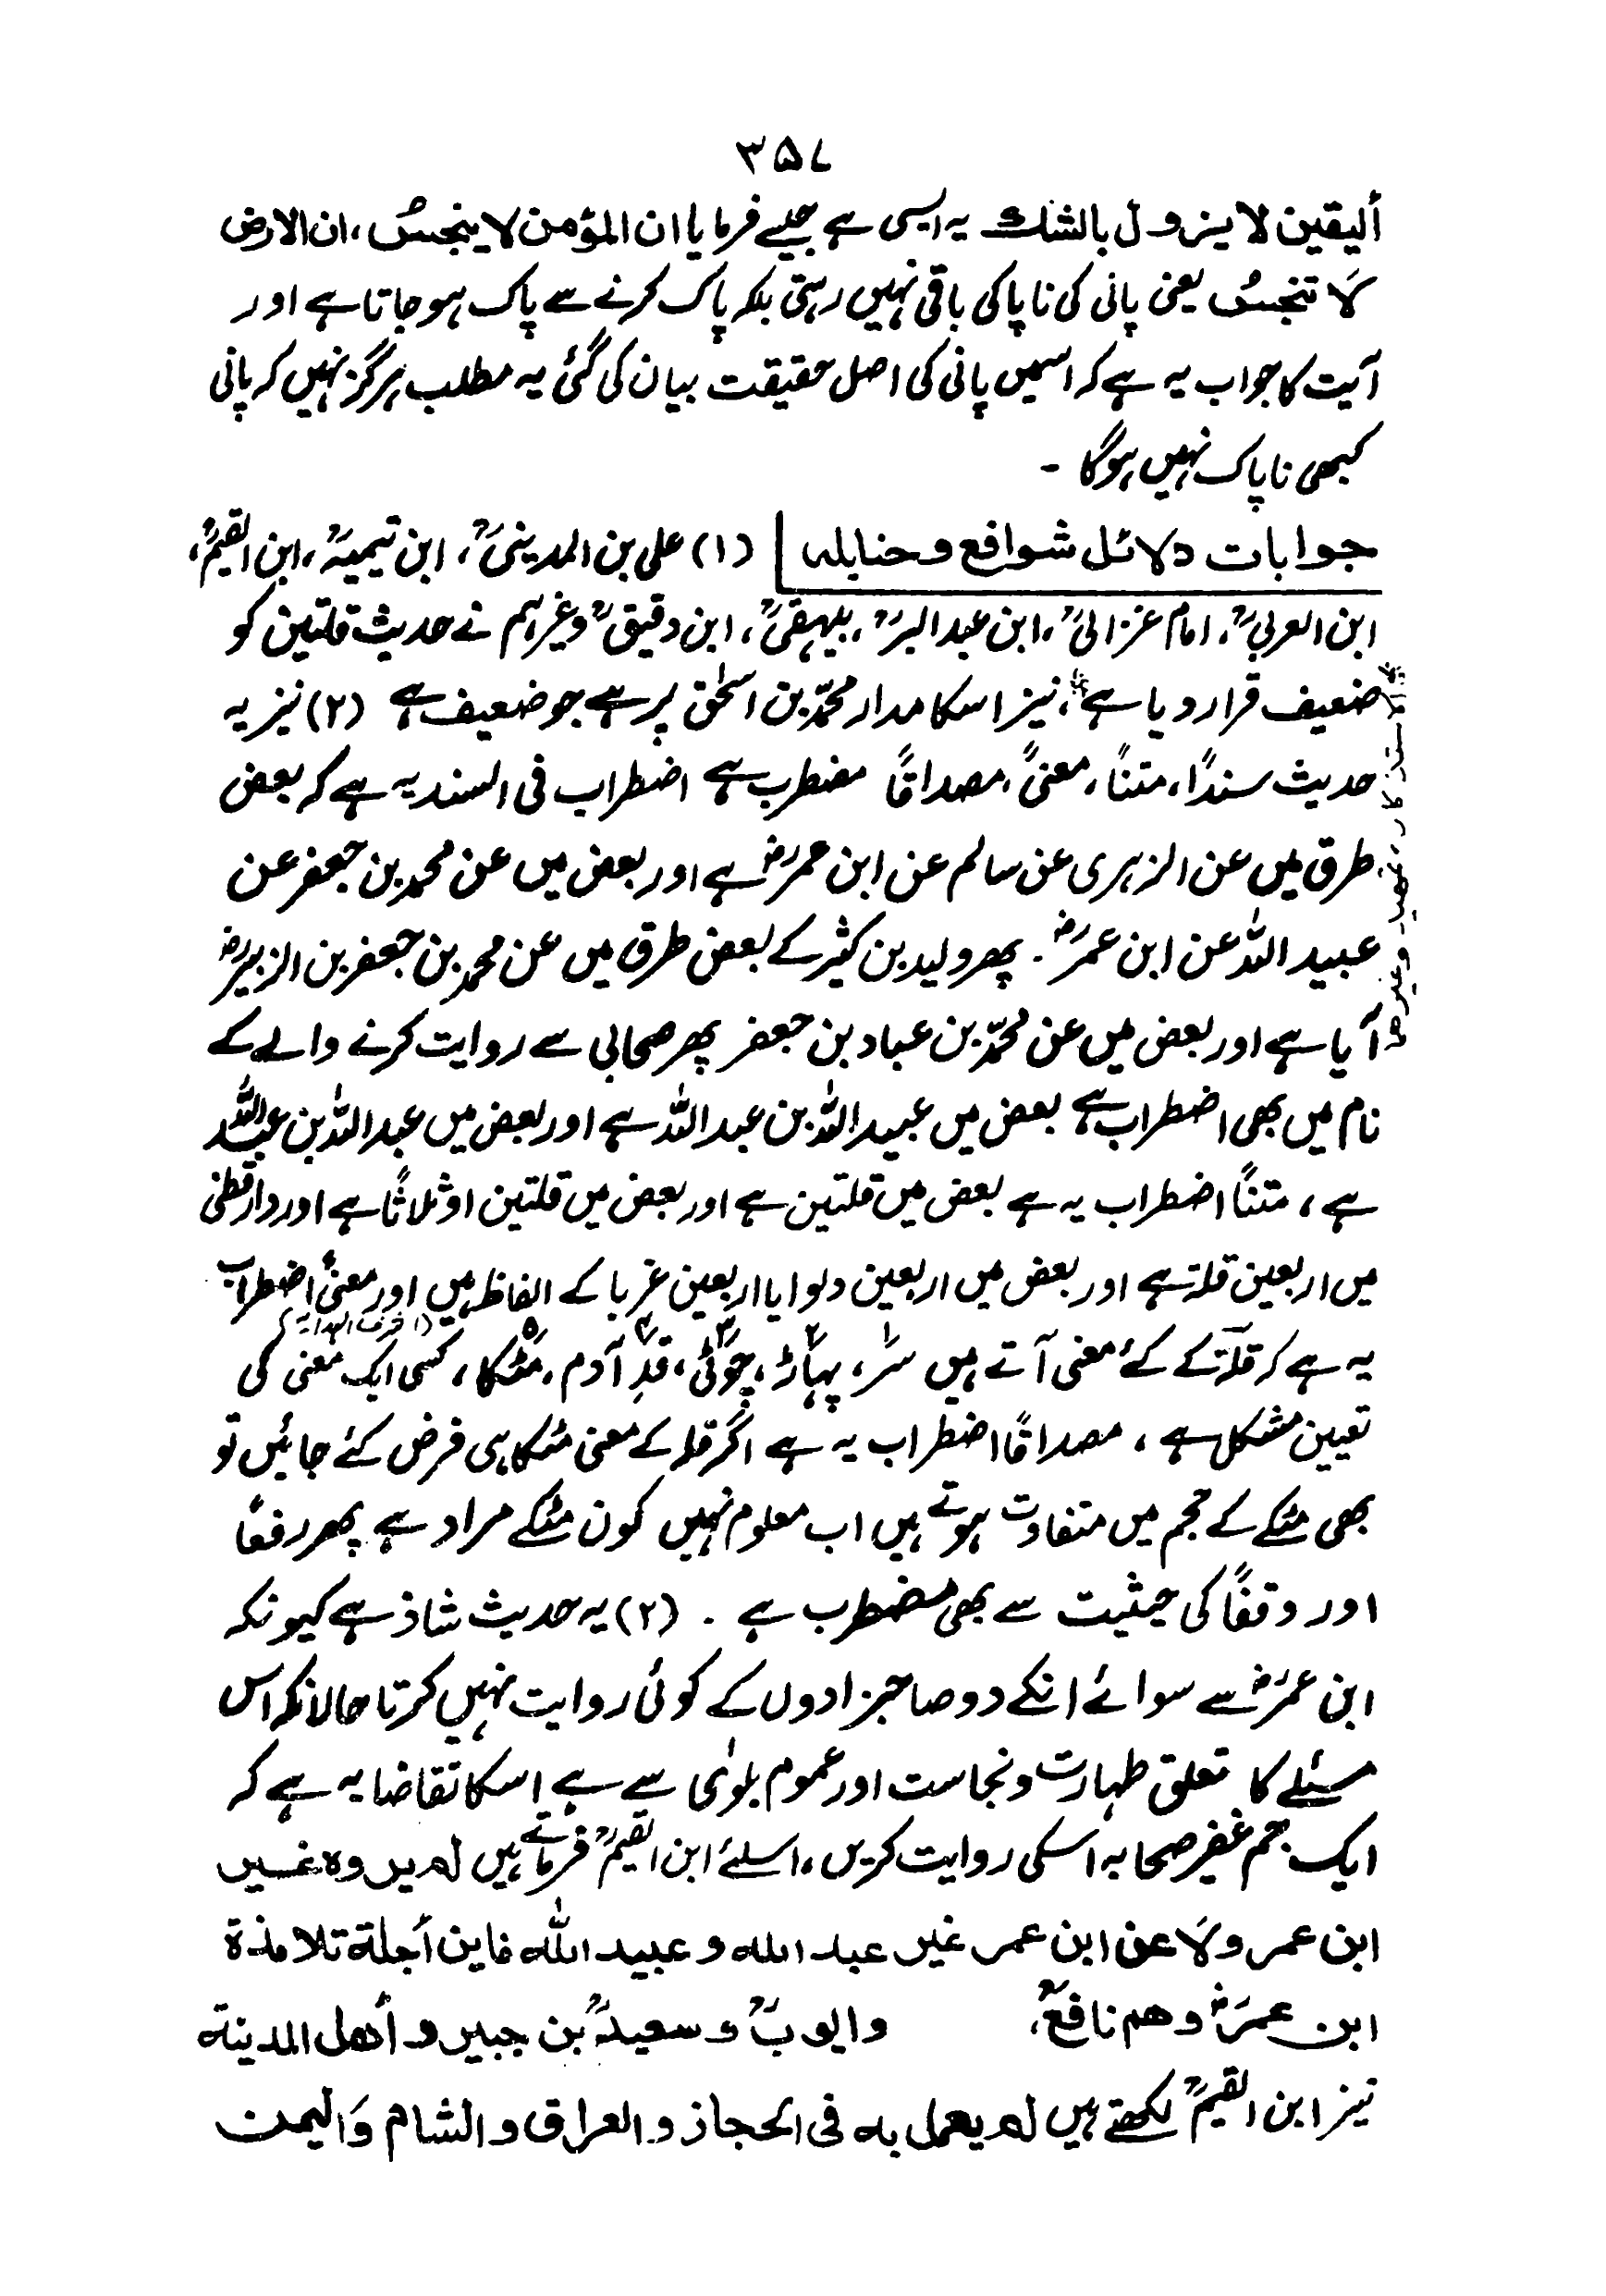 ۳۵۷
ألیقین لا یزول بالشك یہ ایسی ہے جیسے فرمایا ان المؤمن لا ینجسُ ، ان الارض
لَا تنجسُ یعنی پانی کی ناپاکی باقی نہیں رہتی بلکہ پاک کرنے سے پاک ہوجاتا ہے اور
آیت کا جواب یہ ہے کہ اسمیں پانی کی اصل حقیقت بیان کی گئی یہ مطلب ہرگز نہیں کہ پانی
کبھی ناپاک نہیں ہوگا ۔
جوابات دلائل شوافع وحنابلہ (۱) علی بن المدینیؒ ، ابن تیمیہؒ ، ابن القیمؒ ،
ابن العربیؒ ، امام غزالیؒ ، ابن عبدالبرؒ ، بیہقیؒ ، ابن دقیقؒ وغیرہم نے حدیث قلتین کو
ضعیف قرار دیا ہے ، نیز اسکا مدار محمّد بن اسحٰق پر ہے جو ضعیف ہے (۲) نیز یہ
حدیث سندًا ، متنًا ، معنیً ، مصداقًا مضطرب ہے اضطراب فی السند یہ ہے کہ بعض
طرق میں عن الزہری عن سالم عن ابن عمرؓ ہے اور بعض میں عن محمد بن جعفر عن
عبید اللہ عن ابن عمرؓ ۔ پھر ولید بن کثیر کے بعض طرق میں عن محمد بن جعفر بن الزبیرؓ
آیا ہے اور بعض میں عن محمّد بن عباد بن جعفر پھر صحابی سے روایت کرنے والے کے
نام میں بھی اضطراب ہے بعض میں عبید اللہ بن عبد اللہ ہے اور بعض میں عبد اللہ بن عبد اللہ
ہے ، متنًا اضطراب یہ ہے بعض میں قلتین ہے اور بعض میں قلتین او ثلاثًا ہے اور دارقطنی
میں اربعین قلۃ ہے اور بعض میں اربعین دلوا یا اربعین غربا کے الفاظ ہیں اور معنیً اضطراب
یہ ہے کہ قلۃ کے کئ معنی آتے ہیں سر ، پہاڑ ، چوٹی ، قدِ آدم ، مٹکا ، کسی ایک معنی کی
تعیین مشکل ہے ، مصداقًا اضطراب یہ ہے اگر قلہ کے معنی مٹکا ہی فرض کئے جائیں تو
بھی مٹکے کے حجم میں متفاوت ہوتے ہیں اب معلوم نہیں کون مٹکے مراد ہے پھر رفعًا
اور وقفًا کی حیثیت سے بھی مضطرب ہے ۔ (۲) یہ حدیث شاذ ہے کیونکہ
ابن عمرؓ سے سوائے انکے دو صاحبزادوں کے کوئی روایت نہیں کرتا حالانکہ اس
مسئلے کا تعلق طہارت و نجاست اور عموم بلوٰی سے ہے اسکا تقاضا یہ ہے کہ
ایک جم غفیر صحابہ اسکی روایت کریں ، اسلئے ابن القیمؒ فرماتے ہیں لم یروہ غیر
ابن عمر ولَا عن ابن عمر غیر عبد اللہ و عبید اللہ فاین أجلة تلامذة
ابن عمرؓ وهم نافعؒ ، وایوبؒ و سعیدؒ بن جبیر و أهل المدینة
نیز ابن القیمؒ لکھتے ہیں لم یعمل به فی الحجاز و العراق و الشام وَالیمن